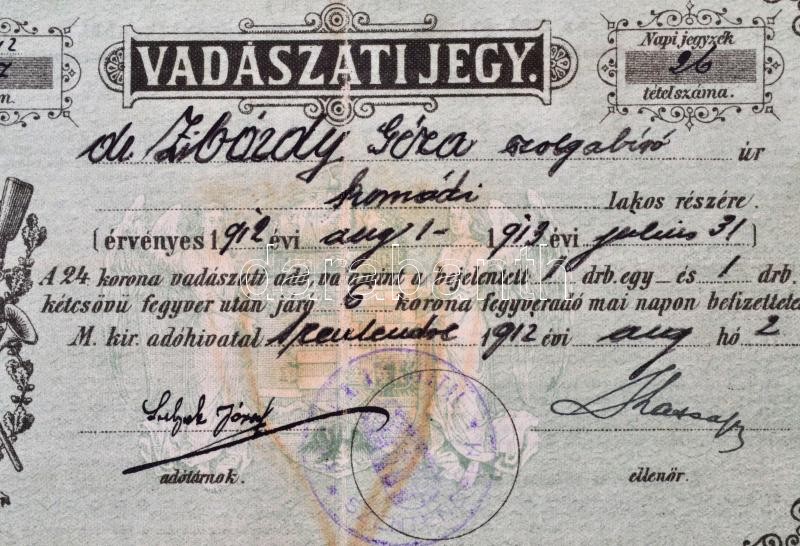 VADÁSZATI JEGY.
Napi jegyzék
26
tételszáma.
Géza szolgabíró úr
komádi lakos részére.
(érvényes 1912 évi aug 1 - 1913 évi julius 31)
A 24 korona vadászati adó, va mint a bejelentett 1 drb. egy és 1 drb.
kétcsövű fegyver után járó 6 korona fegyveradó mai napon befizettete
M. kir. adóhivatal Szentendre 1912 évi aug hó 2
József
adótárnok.
ellenőr.
darabanth